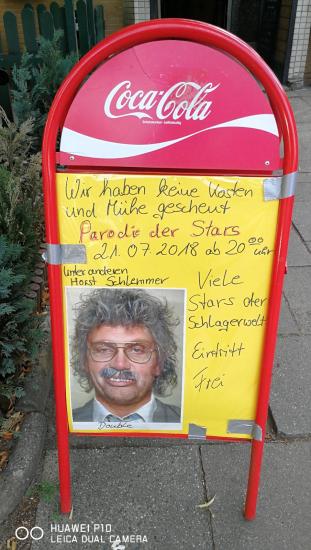 Coca-Cola
Wir haben keine Kosten
und Mühe gescheut
Parodie der Stars
21.07.2018 ab 20⁰⁰ Uhr
unter anderen
Horst Schlemmer
Viele
Stars der
Schlagerwelt
Eintritt
Frei
Double
HUAWEI P10
LEICA DUAL CAMERA